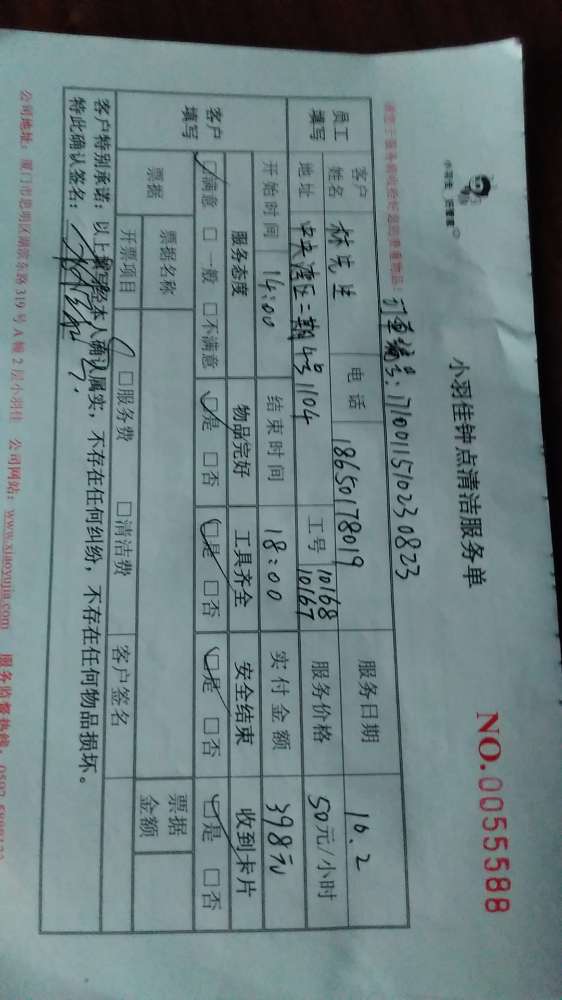 小羽佳 洁管家
小羽佳钟点清洁服务单
NO.0055588
订单编号：17100115102308 23
员工填写
客户姓名 林先生 电话 18650178019 服务日期 10.2
地址 中央湾区二期4号1104 工号 10168 10167 服务价格 50元/小时
开始时间 14:00 结束时间 18:00 实付金额 398元
客户填写
服务态度 物品完好 工具齐全 安全结束 收到卡片
☑满意 □一般 □不满意 ☑是 □否 ☑是 □否 ☑是 □否 ☑是 □否
票据 票据名称 票据金额
开票项目 □服务费 □清洁费 客户签名
客户特别承诺：以上填写经本人确认属实，不存在任何纠纷，不存在任何物品损坏。
特此确认签名：
公司地址：厦门市思明区湖滨东路319号A幢2层小羽佳 公司网站：www.xiaoyujia.com 服务监督热线：0592-